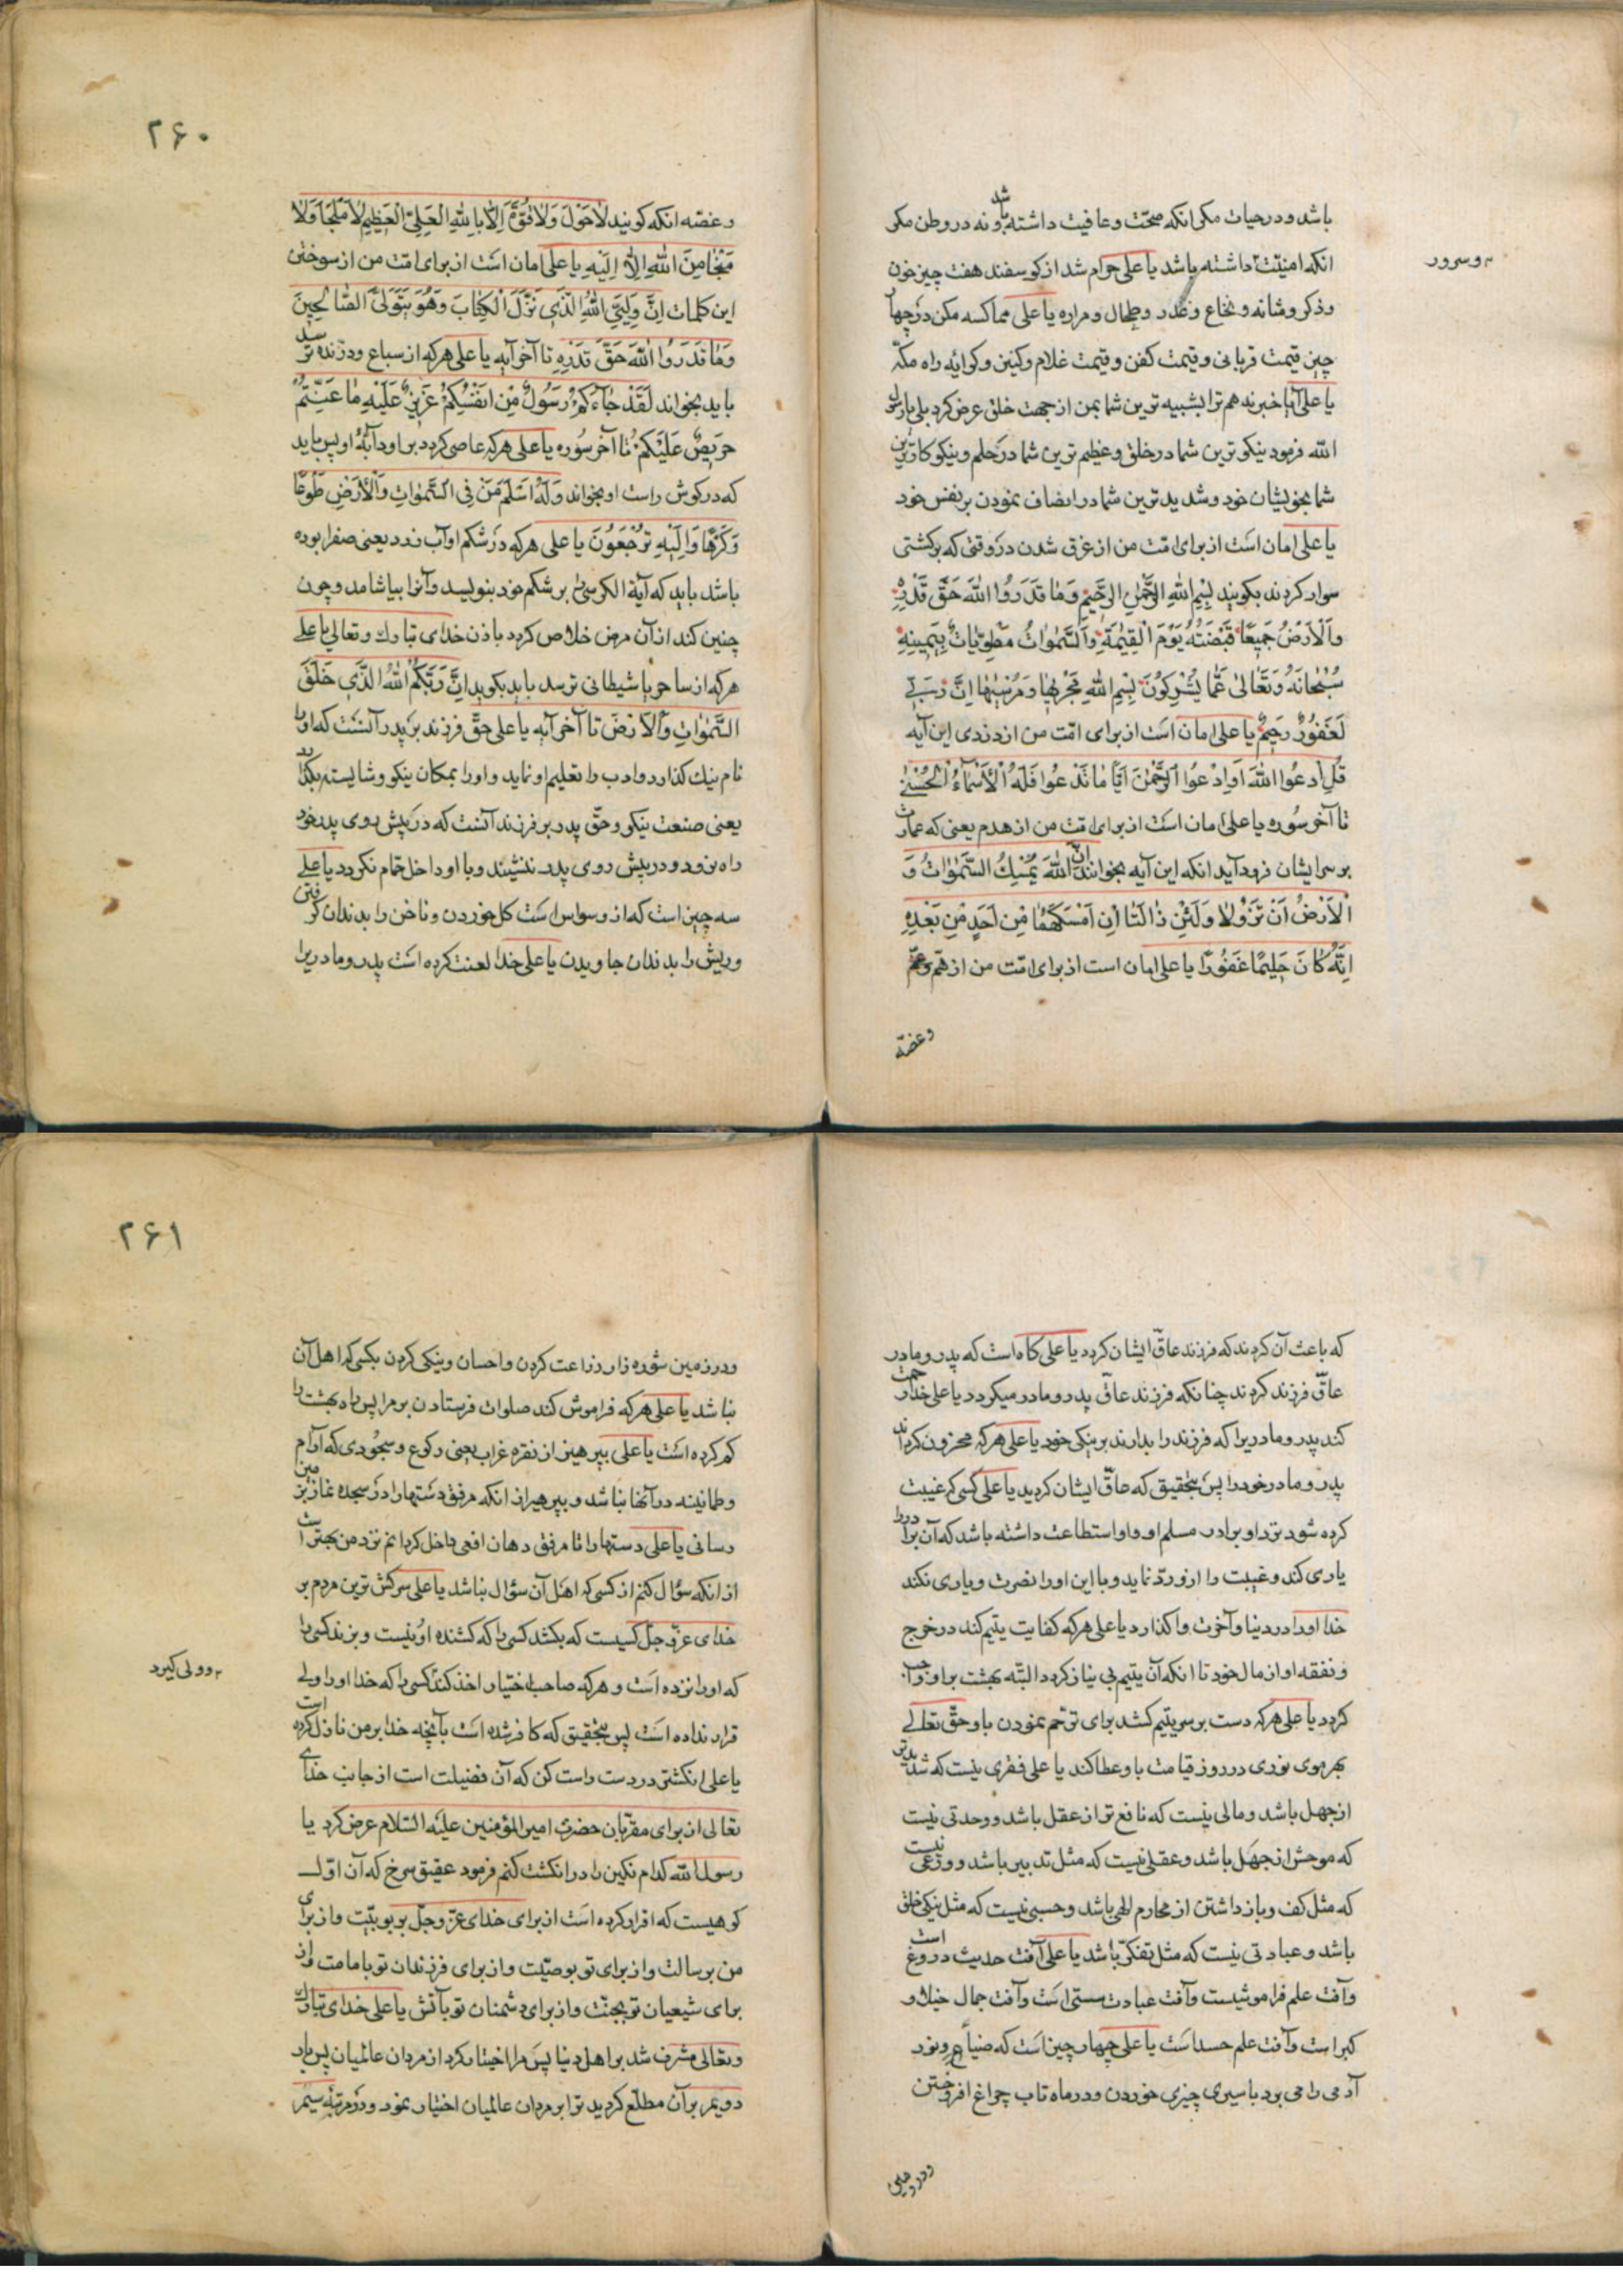 باشد و در حیات مکر انکه صحّت و عافیت داشته باشد و نه در وطن مکر
انکه امنیّت داشته باشد یا علی حرام شد از کوسفند هفت چیز خون
و سرور
و ذکر و مثانه و نخاع و غدد و طحال و مراره یا علی مماکسه مکن در چهار
چیز قیمت قربانی و قیمت کفن و قیمت غلام و کنیز و کرایه راه مکّه
یا علی آیا خبر ندهم ترا بشبیه ترین شما بمن از جهت خلق عرض کرد بلی یا رسول
الله فرمود نیکو ترین شما در خلق و عظیم ترین شما در حلم و نیکو کارترین
شما بخویشان خود و شدید ترین شما در انصاف نمودن بر نفس خود
یا علی امان است از برای امّت من از غرق شدن در وقتی که بر کشتی
سوار کردند بکویند بِسْمِ اللّهِ الرَّحْمنِ الرَّحیمِ وَمٰا قَدَرُوا اللّهَ حَقَّ قَدْرِهِ
وَالْاَرْضُ جَمیعًا قَبْضَتُهُ یَوْمَ الْقِیٰمَةِ وَالسَّمٰوٰاتُ مَطْوِیّٰاتٌ بِیَمینِهِ
سُبْحٰانَهُ وَتَعٰالیٰ عَمّٰا یُشْرِکُونَ بِسْمِ اللّهِ مَجْرٰیهٰا وَمُرْسٰیهٰا اِنَّ رَبّی
لَغَفُورٌ رَحیمٌ یا علی امان است از برای امّت من از دزدی این آیه
قُلِ ادْعُوا اللّهَ اَوِ ادْعُوا الرَّحْمٰنَ اَیًّا مٰا تَدْعُوا فَلَهُ الْاَسْمٰاءُ الْحُسْنیٰ
تا آخر سوره یا علی امان است از برای امّت من از هدم یعنی که عمارت
بر سر ایشان فرود آید انکه این آیه بخوانند اِنَّ اللّهَ یُمْسِكُ السَّمٰوٰاتِ وَ
الْاَرْضَ اَنْ تَزُولٰا وَلَئِنْ زٰالَتٰا اِنْ اَمْسَکَهُمٰا مِنْ اَحَدٍ مِنْ بَعْدِهِ
اِنَّهُ کٰانَ حَلیمًا غَفُورًا یا علی امان است از برای امّت من از همّ و غمّ
و غصّه
۲۶۰
و غصّه انکه کویند لٰا حَوْلَ وَلٰا قُوَّةَ اِلّٰا بِاللّهِ الْعَلِیِّ الْعَظیمِ لٰا مَلْجَاَ وَلٰا
مَنْجٰا مِنَ اللّهِ اِلّٰا اِلَیْهِ یا علی امان است از برای امّت من از سوختن
این کلمات اِنَّ وَلِیِّیَ اللّهُ الَّذی نَزَّلَ الْکِتٰابَ وَهُوَ یَتَوَلَّی الصّٰالِحینَ
وَمٰا قَدَرُوا اللّهَ حَقَّ قَدْرِهِ تا آخر آیه یا علی هر که از سباع و درنده ترسد
باید بخواند لَقَدْ جٰاءَکُمْ رَسُولٌ مِنْ اَنْفُسِکُمْ عَزیزٌ عَلَیْهِ مٰا عَنِتُّمْ
حَریصٌ عَلَیْکُمْ تا آخر سوره یا علی هر که عاصی کردد بر او دابّهٔ او پس باید
که در کوش راست او بخواند وَلَهُ اَسْلَمَ مَنْ فِی السَّمٰوٰاتِ وَالْاَرْضِ طَوْعًا
وَکَرْهًا وَاِلَیْهِ تُرْجَعُونَ یا علی هر که در شکم او آب زرد یعنی صفرا بوده
باشد باید که آیة الکرسی بر شکم خود بنویسد و آنرا بیاشامد و چون
چنین کند از آن مرض خلاص کردد باذن خدای تبارك و تعالی یا علی
هر که از ساحر یا شیطانی ترسد باید بکوید اِنَّ رَبَّکُمُ اللّهُ الَّذی خَلَقَ
السَّمٰوٰاتِ وَالْاَرْضَ تا آخر آیه یا علی حقّ فرزند بر پدر آنست که او را
نام نیك کذارد و ادب را تعلیم او نماید و او را بمکان نیکو و شایسته بکذارد
یعنی صنعت نیکو و حقّ پدر بر فرزند آنست که در پیش روی پدر خود
راه نرود و در پیش روی پدر ننشیند و با او داخل حمّام نکردد یا علی
سه چیز است که از وسواس است کل خوردن و ناخن را بدندان کرفتن
و ریش را بدندان جاویدن یا علی خدا لعنت کرده است پدر و مادریرا
که باعث آن کردند که فرزند عاقّ ایشان کردد یا علی کاه است که پدر و مادر
عاقّ فرزند کردند چنانکه فرزند عاقّ پدر و مادر میکردد یا علی خدا رحمت
کند پدر و مادریرا که فرزند را بدارند بر نیکی خود یا علی هر که محزون کرداند
پدر و مادر خود را پس بتحقیق که عاقّ ایشان کردید یا علی کسی که غیبت
کرده شود نزد او برادر مسلم او و او استطاعت داشته باشد که آن برادر را
یاری کند و غیبت را از او ردّ نماید و با این او را نصرت و یاری نکند
خدا او را در دنیا و آخرت واکذارد یا علی هر که کفایت یتیم کند در خرج
و نفقه او از مال خود تا انکه آن یتیم بی نیاز کردد البتّه بهشت بر او واجب
کردد یا علی هر که دست بر سر یتیم کشد برای ترحّم نمودن باو حقّ تعالی
بهر موی نوری در روز قیامت باو عطا کند یا علی فقری نیست که شدیدتر
از جهل باشد و مالی نیست که نافع تر از عقل باشد و وحدتی نیست
که موحش از جهل باشد و عقلی نیست که مثل تدبیر باشد و ورعی نیست
که مثل کفّ و باز داشتن از محارم الهی باشد و حسبی نیست که مثل نیکی خلق
باشد و عبادتی نیست که مثل تفکّر باشد یا علی آفت حدیث دروغ است
و آفت علم فراموشیست و آفت عبادت سستی است و آفت جمال خیلاو
کبر است و آفت علم حسد است یا علی چهار چیز است که ضیاع و نور
آدمی را می برد با سیری چیزی خوردن و در ماه تاب چراغ افروختن
و در زمین
۲۶۱
و در زمین شوره زار زراعت کردن و احسان و نیکی کردن بکسی که اهل آن
نباشد یا علی هر که فراموش کند صلوات فرستادن بر مرا پس راه بهشت را
کم کرده است یا علی بپرهیز از نقره غراب یعنی رکوع و سجودی که آرام
و طمانینه در آنها نباشد و بپرهیز از انکه مرفق دستها را در سجده نماز بزمین
رسانی یا علی دستها را تا مرفق در دهان افعی داخل کردانم نزد من بهتر است
از انکه سؤال کنم از کسی که اهل آن سؤال نباشد یا علی سرکش ترین مردم بر
خدای عزّ و جلّ کسیست که بکشد کسی را که کشنده او نیست و بزند کسی را
که او را نزده است و هر که صاحب اختیار اخذ کند کسی را که خدا او را ولی
و ولی کیرد
قرار نداده است پس بتحقیق که کافر شده است بآنچه خدا بر من نازل کرده است
یا علی انکشتر در دست راست کن که آن فضیلت است از جانب خدای
تعالی از برای مقرّبان حضرت امیر المؤمنین علیه السّلام عرض کرد یا
رسول الله کدام نکین را در انکشت کنم فرمود عقیق سرخ که آن اوّل
کوهیست که اقرار کرده است از برای خدای عزّ و جلّ بربوبیّت و از برای
من برسالت و از برای تو بوصیّت و از برای فرزندان تو بامامت و از
برای شیعیان تو بجنّت و از برای دشمنان تو بآتش یا علی خدای تبارك
و تعالی مشرف شد بر اهل دنیا پس مرا اختیار کرد از مردان عالمیان پس بار
دویم بر آن مطّلع کردید ترا بر مردان عالمیان اختیار نمود و در مرتبه سیّم